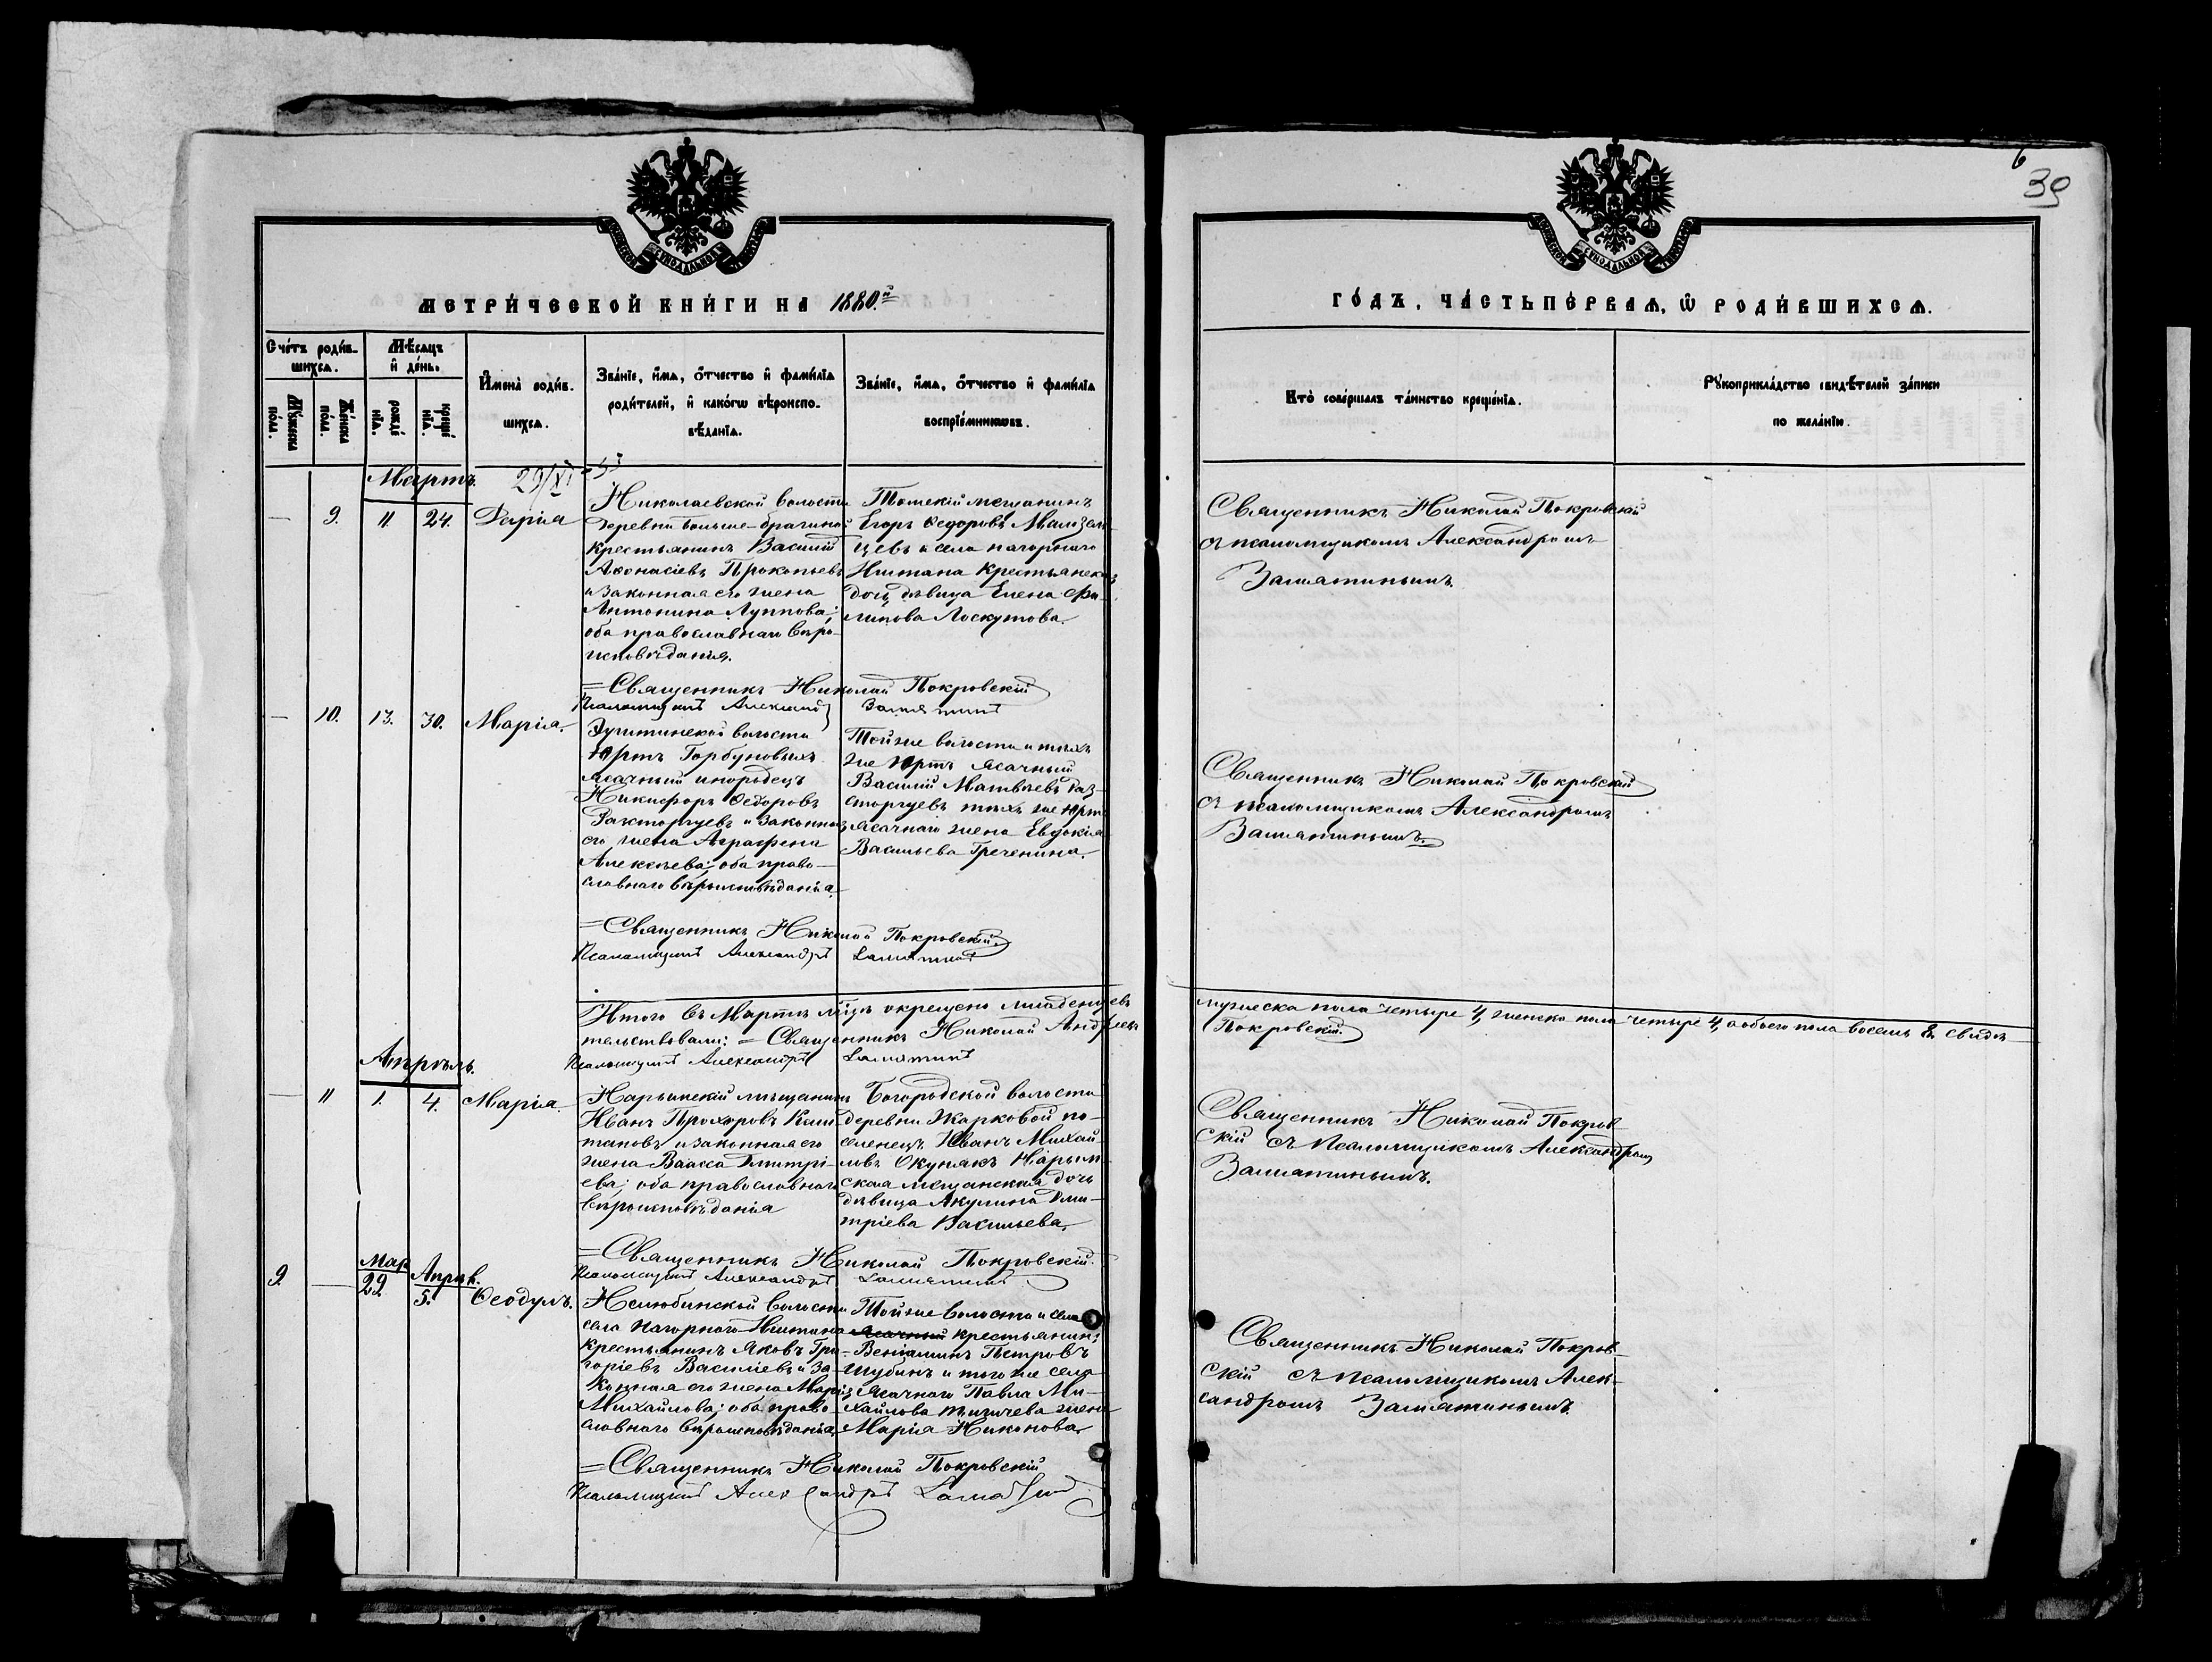 6
39
МЕТРИЧЕСКОЙ КНИГИ НА 1880.й
ГОДЪ, ЧАСТЬ ПЕРВАЯ, Ѿ РОДИВШИХСЯ.
Счетъ родив-
шихся.
Мужеска
пола.
Женска
пола.
Мѣсяцъ
и день.
рожде
нїя.
креще
нїя.
Имена родив.
шихся.
Званїе, имя, отчество и фамилїя
родителей, и какогѡ вѣроиспо-
вѣданїя.
Званїе, имя, отчество и фамилїя
воспрїемникѡвъ.
Кто совершалъ таинство крещенїя.
Рукоприкладство свидѣтелей записи
по желанїю.
Мартъ.
29/XI-55
— 9. 11. 24. Дарiа
Николаевской волости
деревни Больше-брагиной
крестьянинъ Василiй
Аѳонасiевъ Прокопьевъ
и законная его жена
Антонина Луппова;
оба православнаго вѣро-
исповѣданiя.
Томскiй мещанинъ
Егоръ Ѳедоровъ
цевъ и села нагорнаго
Иштана крестьянская
дочь дѣвица Елена Фи-
липова Лоскутова.
Священникъ Николай Покровскiй
съ псаломщикомъ Александромъ
Замятинымъ.
=Священникъ Николай Покровскiй
Псаломщикъ Александръ Замятинъ
— 10. 13. 30. Марiа.
волости
Юртъ Горбуновыхъ
Ясачный инородецъ
Никифоръ Ѳедоровъ
Расторгуевъ и законная
его жена Аграфена
Алексѣева; оба право-
славнаго вѣроисповѣданiа.
Той же волости и тѣхъ
же Юртъ Ясачный
Василiй Матвѣевъ Раз-
сторгуевъ тѣхъ же Юртъ
Ясачнаго жена Евдокiа
Васильева Греченина.
Священникъ Николай Покровскiй
съ псаломщикомъ Александромъ
Замятинымъ.
=Священникъ Николай Покровскiй
Псаломщикъ Александръ Замятинъ
Итого въ Мартѣ мѣцѣ окрещено младенцевъ мужеска пола четыре 4, женска пола четыре 4, а обоего пола восемь 8. свидѣ-
тельствовали: = Священникъ Николай Андреевъ Покровскiй.
Псаломщикъ Александръ Замятинъ
Апрѣль.
— 11 1. 4. Марiа.
Нарымскiй мѣщанинъ
Иванъ Прохоровъ Каш-
тановъ и законная его
жена Васса Дмитрi-
ева; оба православнаго
вѣроисповѣданiа
Богородской волости
деревни Жарковой по-
селенецъ Иванъ Михай-
ловъ Окунякъ Нарым-
ская мещанская дочь
дѣвица Акулина Дми-
трiева Васильева.
Священникъ Николай Покров-
скiй съ Псаломщикомъ Александромъ
Замятинымъ.
=Священникъ Николай Покровскiй.
Псаломщикъ Александръ Замятинъ
9 — Мар 29 Апрѣл. 5. Ѳеодулъ.
Нелюбинской волости
села Нагорнаго Иштана
крестьянинъ Яковъ Гри-
горiевъ Василiевъ и за-
конная его жена Марiа
Михайлова; оба право-
славнаго вѣроисповѣданiа.
Той же волости и села
Ясачный крестьянинъ
Венiаминъ Петровъ
Шубинъ и того же села
Ясачнаго Павла Ми-
хайлова жена
Марiа Никонова.
Священникъ Николай Покров-
скiй съ псаломщикомъ Алек-
сандромъ Замятинымъ.
=Священникъ Николай Покровскiй
Псаломщикъ Александръ Замятинъ